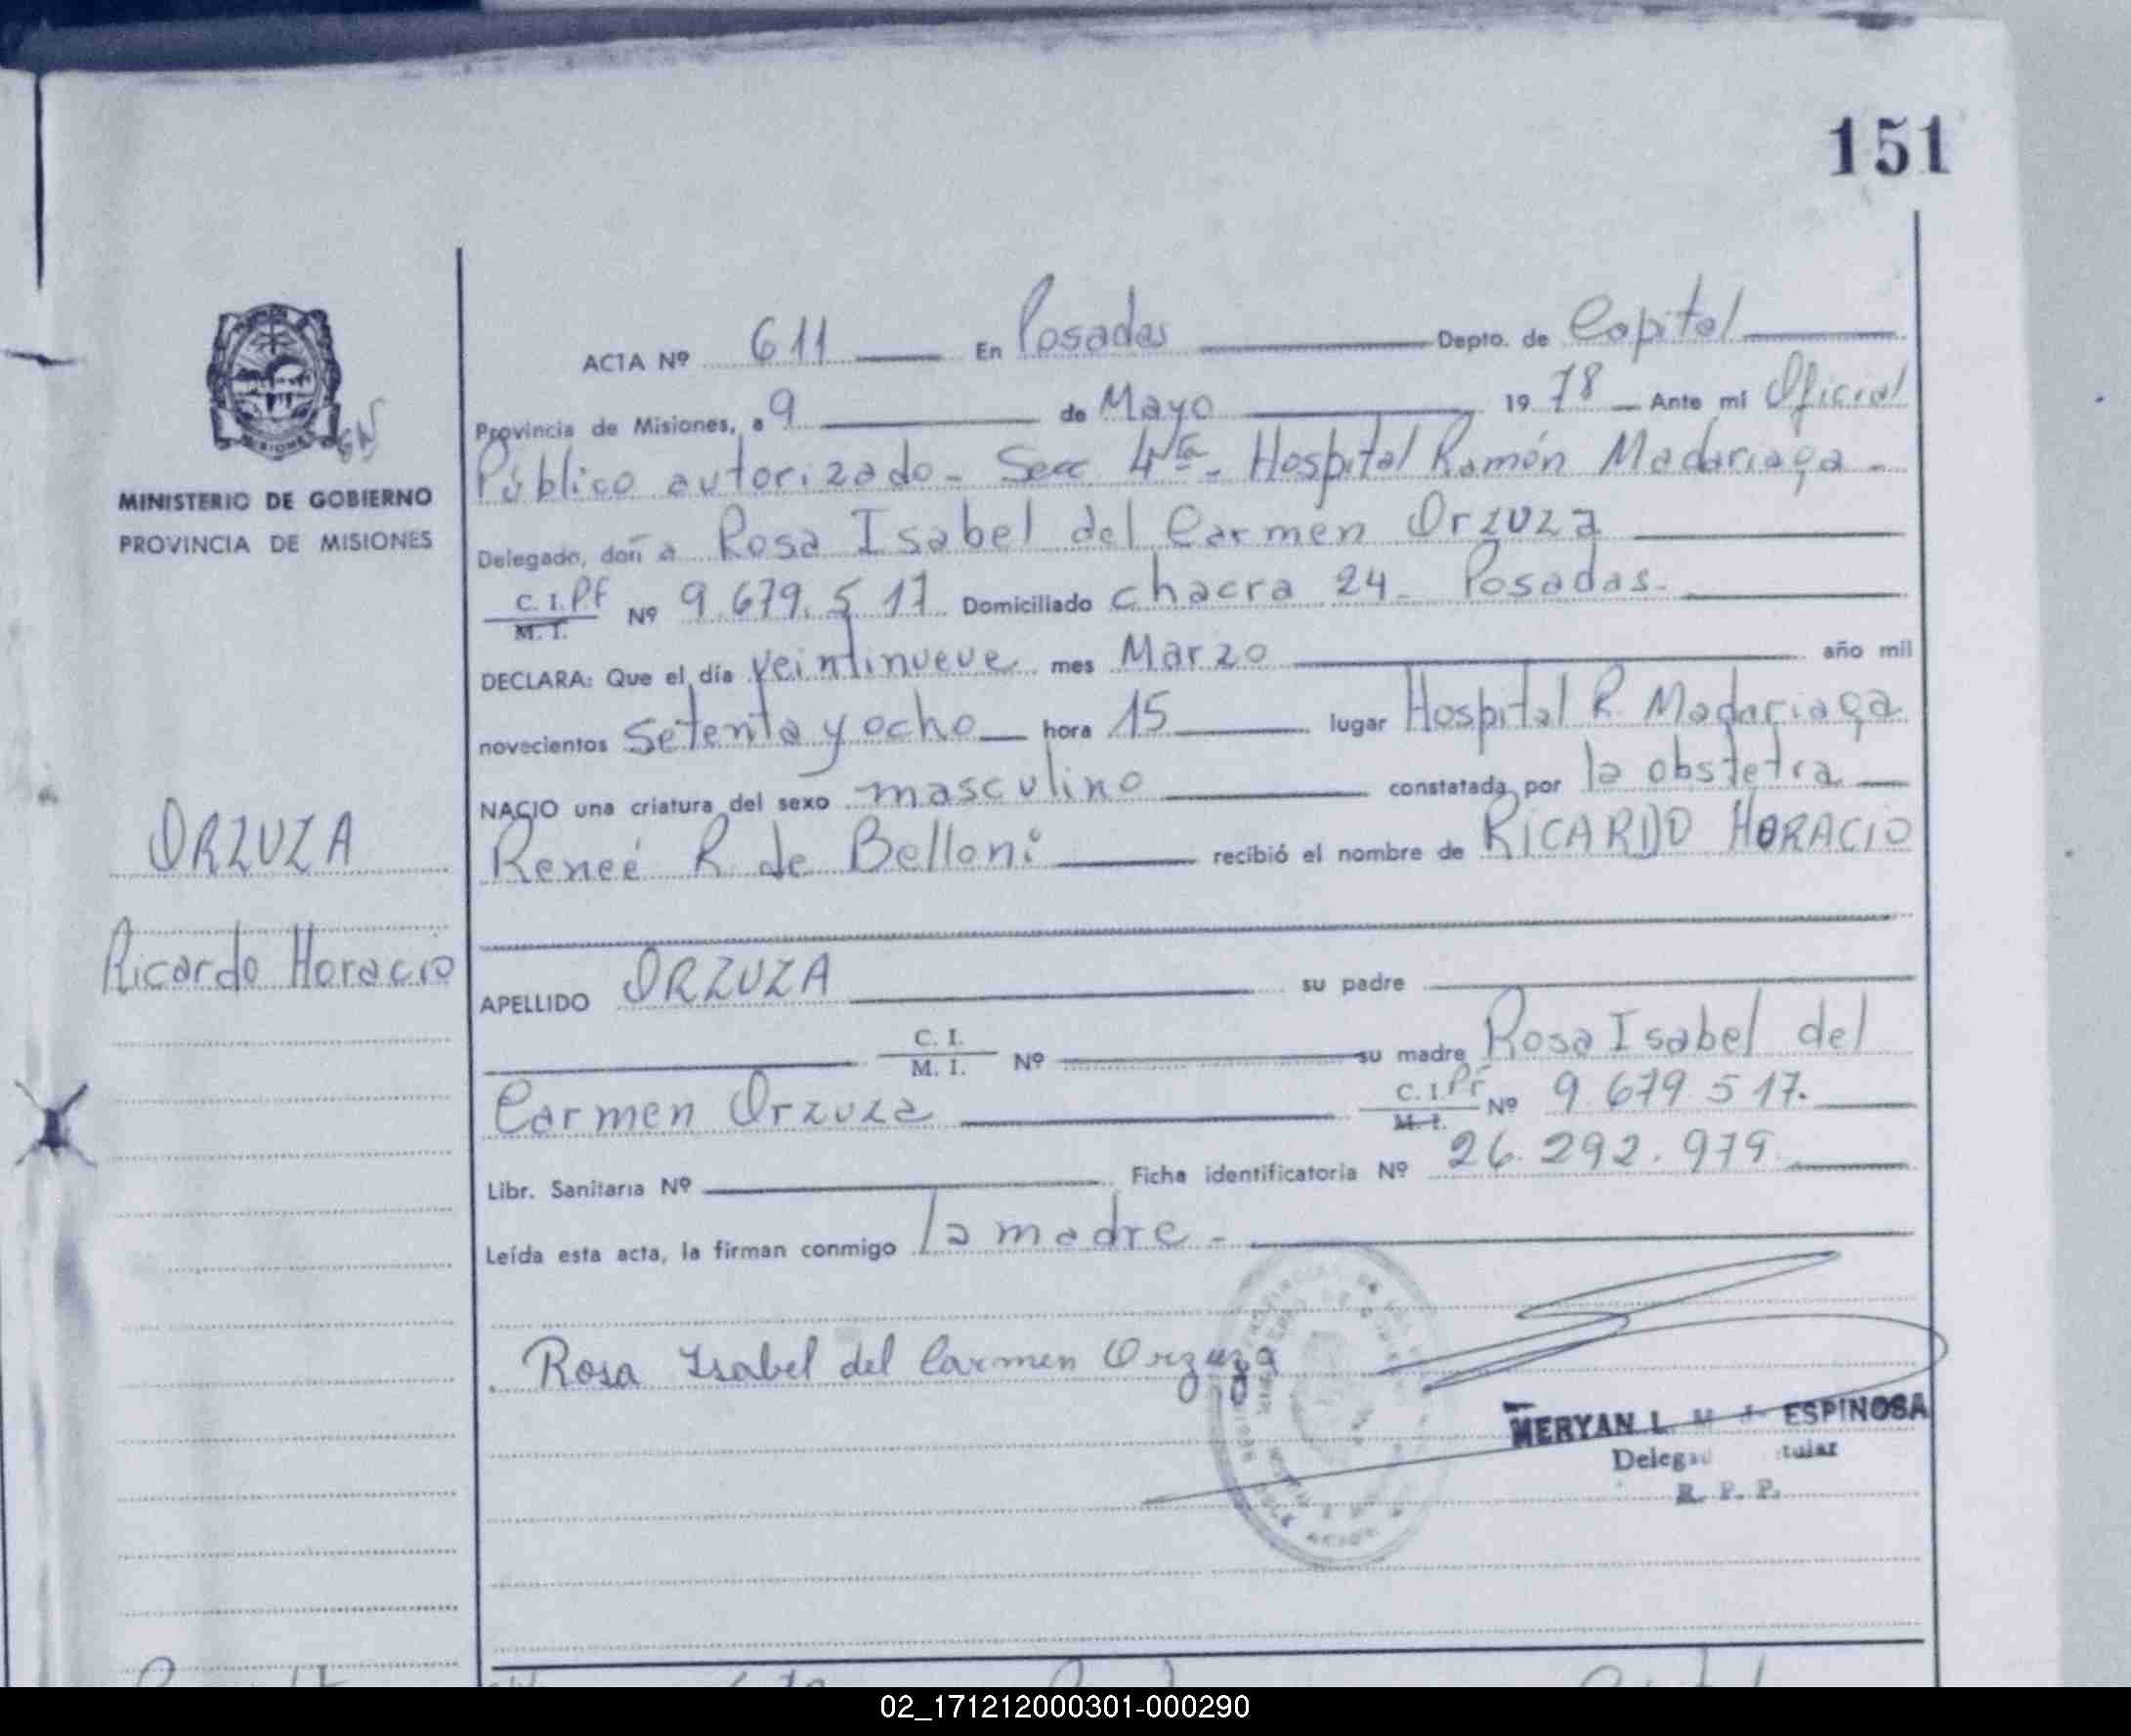 151
ACTA Nº 611 En Posadas Depto. de Capital
Provincia de Misiones, a 9 de Mayo 1978 Ante mi Oficial
Público autorizado - Secc 4ta - Hospital Ramón Madariaga -
MINISTERIO DE GOBIERNO
PROVINCIA DE MISIONES
Delegado, doña Rosa Isabel del Carmen Orzuza
C. I. Pf
M. I.
Nº 9.679.517 Domiciliado chacra 24 - Posadas -
DECLARA: Que el día veintinueve mes Marzo año mil
novecientos setenta y ocho hora 15 lugar Hospital R. Madariaga
NACIO una criatura del sexo masculino constatada por la obstetra
ORZUZA
Reneé R. de Belloni recibió el nombre de RICARDO HORACIO
Ricardo Horacio
APELLIDO ORZUZA su padre
C. I.
M. I.
Nº su madre Rosa Isabel del
Carmen Orzuza C. I. Pf
M. I.
Nº 9.679.517.
Libr. Sanitaria Nº Ficha identificatoria Nº 26.292.979.
Leída esta acta, la firman conmigo la madre -
Rosa Isabel del Carmen Orzuza
MERYAN L. ESPINOSA
R. P. P.
02_171212000301-000290